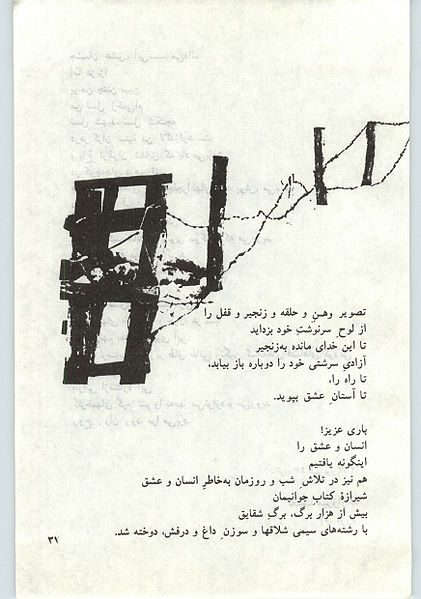 تصویر وهنِ و حلقه و زنجیر و قفل را
از لوح ِ سرنوشتِ خود بزداید
تا این خدای مانده به‌زنجیر
آزادیِ سرشتی خود را دوباره باز بیابد،
تا راه را،
تا آستانِ عشق بپوید.
باری عزیز!
انسان و عشق را
اینگونه یافتیم
هم نیز در تلاش ِ شب و روزمان به‌خاطرِ انسان و عشق
شیرازهٔ کتابِ جوانیمان
بیش از هزار برگ، برگِ شقایق
با رشته‌های سیمی شلاقها و سوزن ِ داغ و درفش، دوخته شد.
۳۱